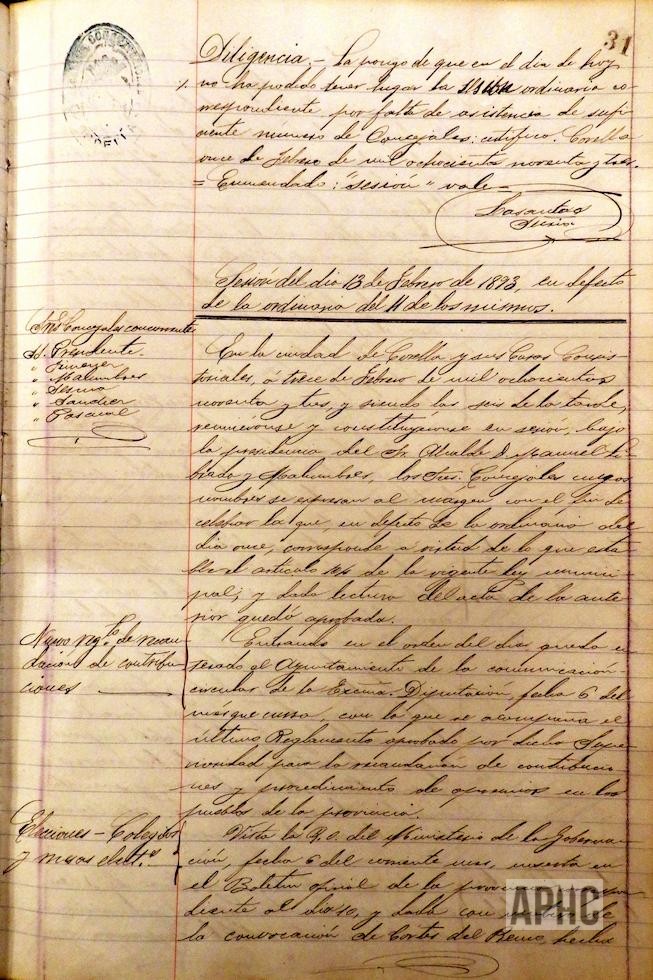 31
Diligencia.- La pongo de que en el dia de hoy
no ha podido tener lugar la sesión ordinaria co-
rrespondiente por falta de asistencia de sufi-
ciente numero de Concejales: certifico. Corella
once de Febrero de mil ochocientos noventa y tres.
= Enmendado: "sesión" vale =
Sesión del dia 13 de Febrero de 1893, en defecto
de la ordinaria del 11 de los mismos.
Sres Concejales concurrentes
Sr. Presidente.
" Jimenez
" Malumbres
" Sesma
" Sanchez
" Pascual
En la ciudad de Corella y sus Casas Consis-
toriales, á trece de Febrero de mil ochocientos
noventa y tres, y siendo las seis de la tarde,
reunieronse y constituyeronse en sesión, bajo
la presidencia del Sr. Alcalde D. Manuel
y Malumbres, los Sres. Concejales cuyos
nombres se expresan al margen con el fin de
celebrar la que, en defecto de la ordinaria del
dia once, corresponde a virtud de lo que esta-
blece el articulo 104 de la vigente ley munici-
pal; y dada lectura del acta de la ante-
rior quedó aprobada.
Nuevo Rgto. de recau-
dacion de contribu-
ciones
Entrando en el orden del dia queda en-
terado el Ayuntamiento de la comunicación
circular de la Excma. Diputacion, fecha 6 del
mes que cursa, con la que se acompaña el
último Reglamento aprobado por dicha Supe-
rioridad para la recaudación de contribucio-
nes y procedimiento de apremios en los
pueblos de la provincia.
Elecciones - Colegios
y mesas elect.s
Vista la R.O. del Ministerio de la Goberna-
ción, fecha 6 del corriente mes, inserta en
el Boletin oficial de la
diente al dia 10, y dada con
la convocación de Cortes del Reino, hecha
APHC